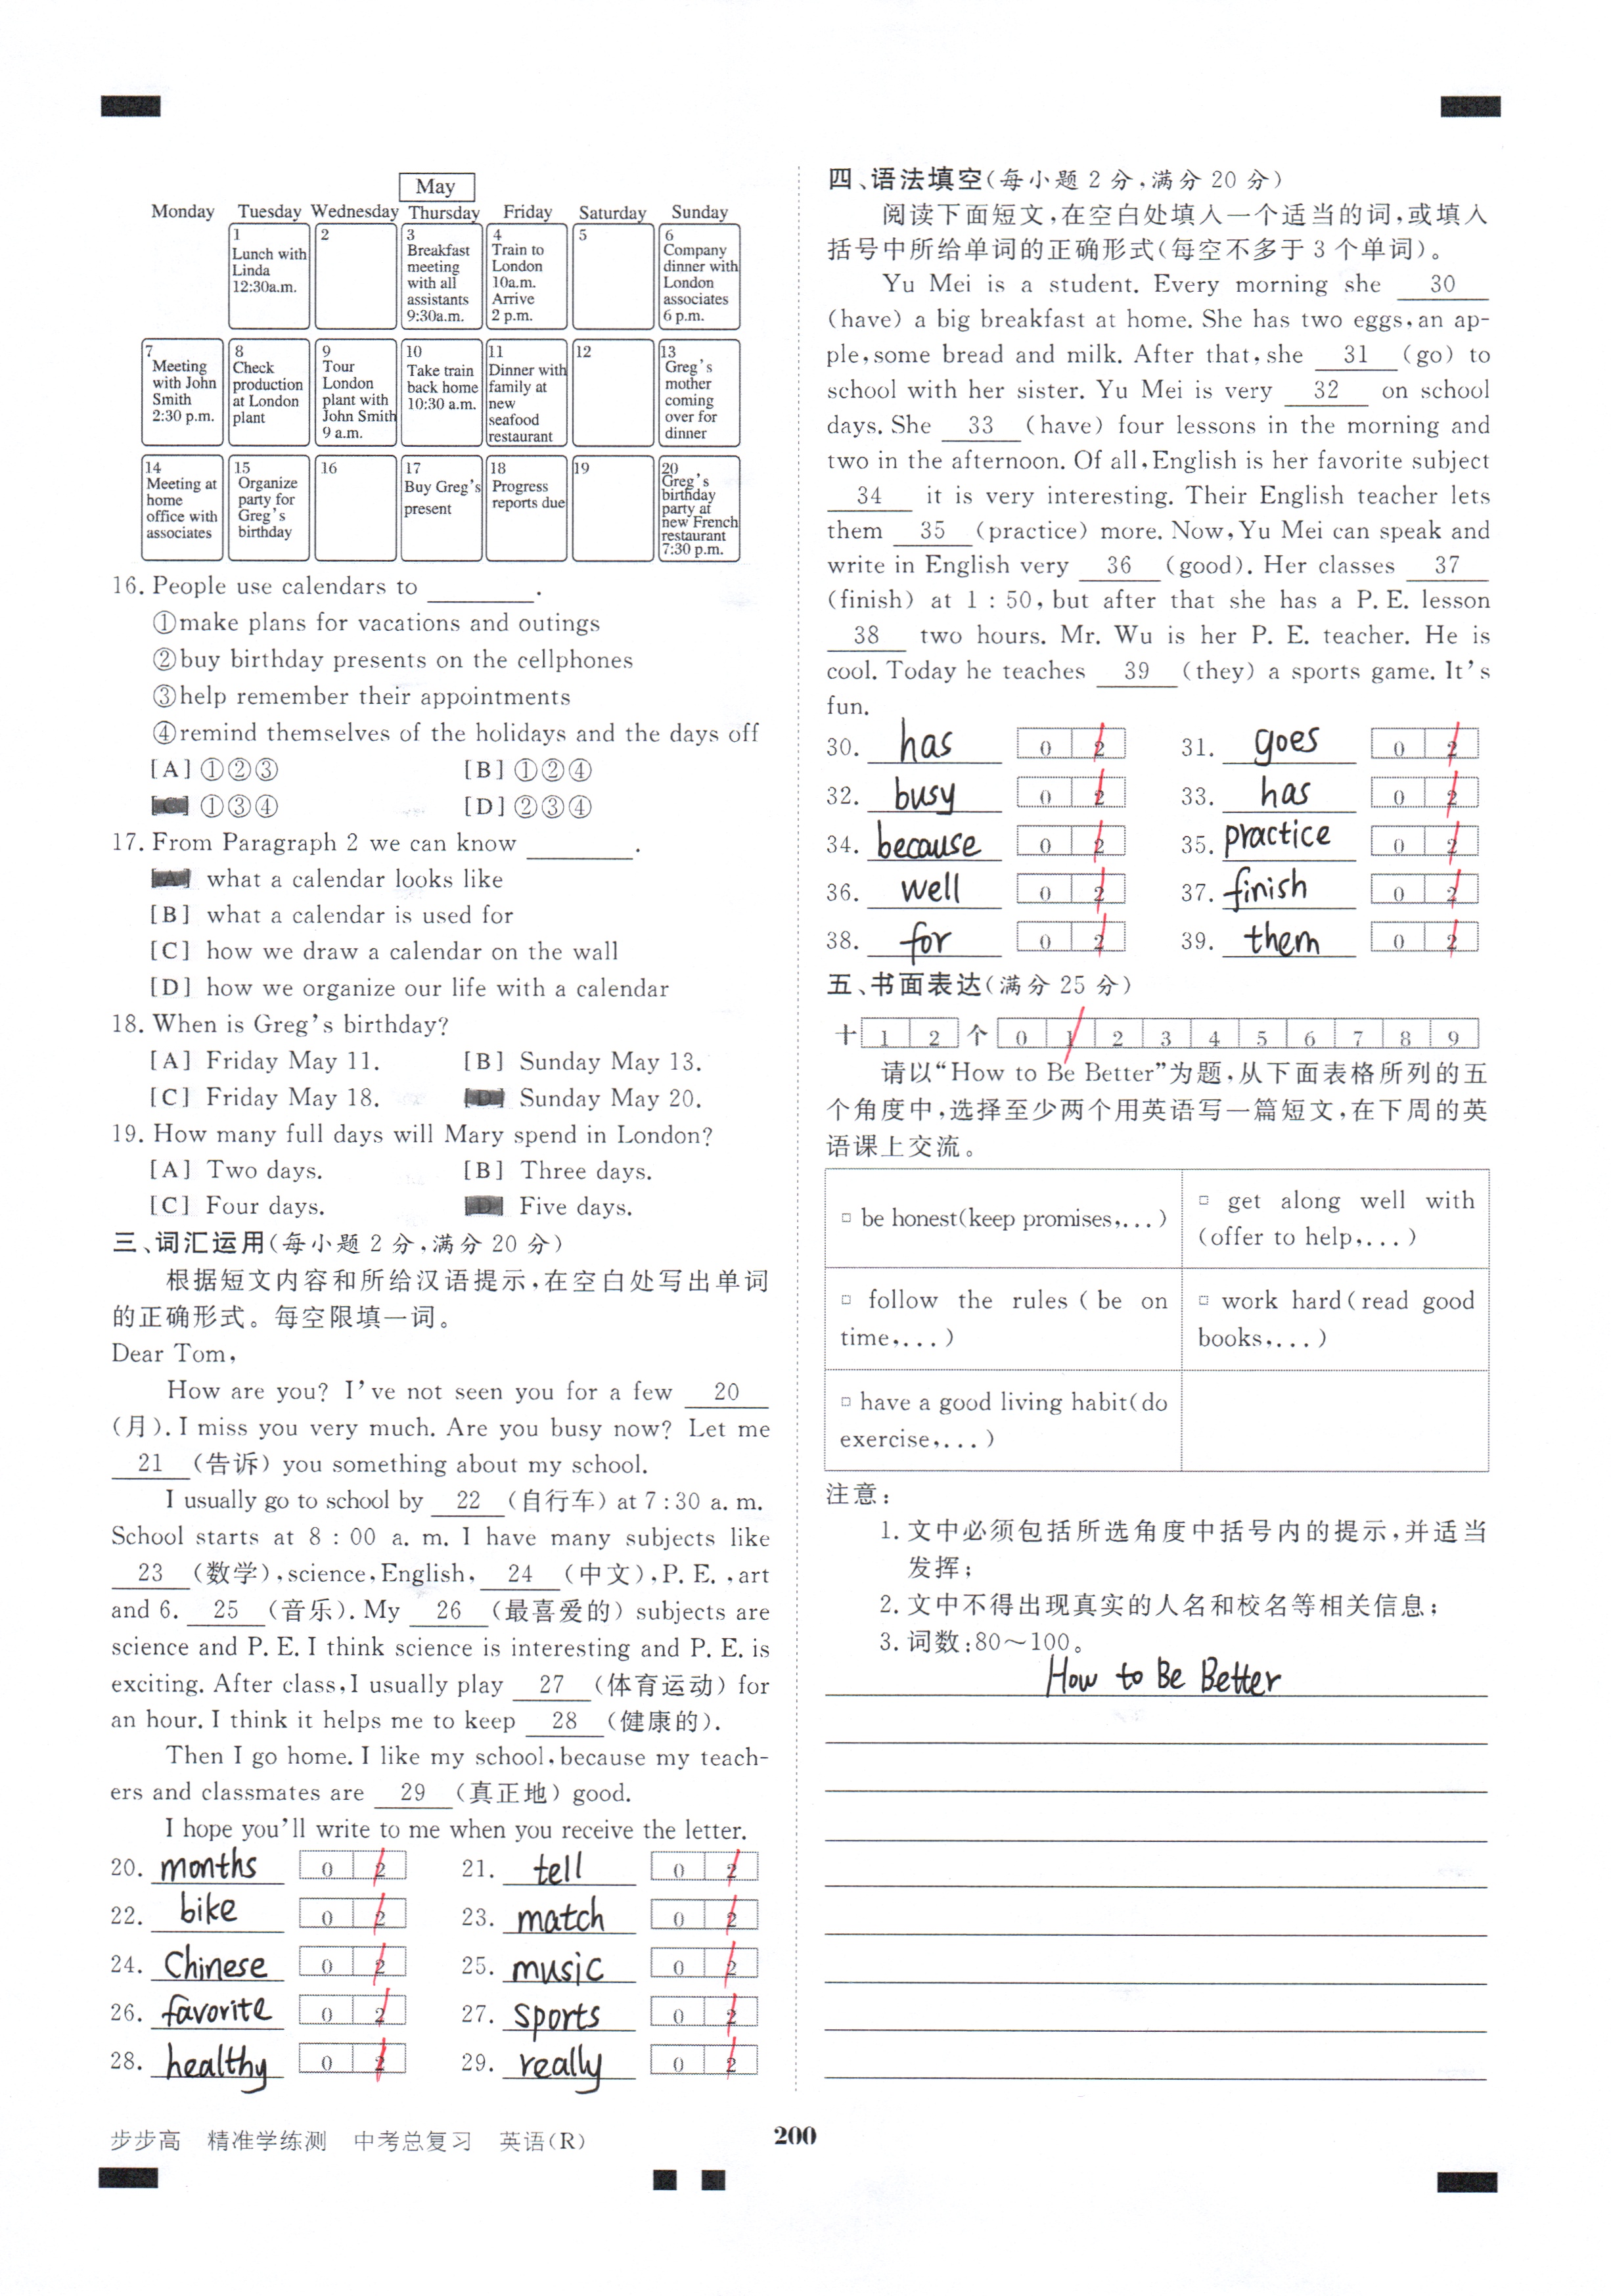 May
Monday Tuesday Wednesday Thursday Friday Saturday Sunday
1 Lunch with Linda 12:30a.m.
2
3 Breakfast meeting with all assistants 9:30a.m.
4 Train to London 10a.m. Arrive 2 p.m.
5
6 Company dinner with London associates 6 p.m.
7 Meeting with John Smith 2:30 p.m.
8 Check production at London plant
9 Tour London plant with John Smith 9 a.m.
10 Take train back home 10:30 a.m.
11 Dinner with family at new seafood restaurant
12
13 Greg's mother coming over for dinner
14 Meeting at home office with associates
15 Organize party for Greg's birthday
16
17 Buy Greg's present
18 Progress reports due
19
20 Greg's birthday party at new French restaurant 7:30 p.m.
16. People use calendars to ________.
①make plans for vacations and outings
②buy birthday presents on the cellphones
③help remember their appointments
④remind themselves of the holidays and the days off
[A] ①②③ [B] ①②④
[C] ①③④ [D] ②③④
17. From Paragraph 2 we can know ________.
[A] what a calendar looks like
[B] what a calendar is used for
[C] how we draw a calendar on the wall
[D] how we organize our life with a calendar
18. When is Greg's birthday?
[A] Friday May 11. [B] Sunday May 13.
[C] Friday May 18. [D] Sunday May 20.
19. How many full days will Mary spend in London?
[A] Two days. [B] Three days.
[C] Four days. [D] Five days.
三、词汇运用(每小题 2 分,满分 20 分)
根据短文内容和所给汉语提示,在空白处写出单词
的正确形式。每空限填一词。
Dear Tom,
How are you? I've not seen you for a few 20
(月). I miss you very much. Are you busy now? Let me
21 (告诉) you something about my school.
I usually go to school by 22 (自行车) at 7:30 a. m.
School starts at 8 : 00 a. m. I have many subjects like
23 (数学), science, English, 24 (中文), P. E. , art
and 6. 25 (音乐). My 26 (最喜爱的) subjects are
science and P. E. I think science is interesting and P. E. is
exciting. After class, I usually play 27 (体育运动) for
an hour. I think it helps me to keep 28 (健康的).
Then I go home. I like my school, because my teach-
ers and classmates are 29 (真正地) good.
I hope you'll write to me when you receive the letter.
20. months 0 2 21. tell 0 2
22. bike 0 2 23. match 0 2
24. Chinese 0 2 25. music 0 2
26. favorite 0 2 27. sports 0 2
28. healthy 0 2 29. really 0 2
四、语法填空(每小题 2 分,满分 20 分)
阅读下面短文,在空白处填入一个适当的词,或填入
括号中所给单词的正确形式(每空不多于 3 个单词)。
Yu Mei is a student. Every morning she 30
(have) a big breakfast at home. She has two eggs, an ap-
ple, some bread and milk. After that, she 31 (go) to
school with her sister. Yu Mei is very 32 on school
days. She 33 (have) four lessons in the morning and
two in the afternoon. Of all, English is her favorite subject
34 it is very interesting. Their English teacher lets
them 35 (practice) more. Now, Yu Mei can speak and
write in English very 36 (good). Her classes 37
(finish) at 1 : 50, but after that she has a P. E. lesson
38 two hours. Mr. Wu is her P. E. teacher. He is
cool. Today he teaches 39 (they) a sports game. It's
fun.
30. has 0 2 31. goes 0 2
32. busy 0 2 33. has 0 2
34. because 0 2 35. practice 0 2
36. well 0 2 37. finish 0 2
38. for 0 2 39. them 0 2
五、书面表达(满分 25 分)
十 1 2 个 0 1 2 3 4 5 6 7 8 9
请以“How to Be Better”为题,从下面表格所列的五
个角度中,选择至少两个用英语写一篇短文,在下周的英
语课上交流。
□ be honest(keep promises,...)
□ get along well with
(offer to help,...)
□ follow the rules (be on
time,...)
□ work hard(read good
books,...)
□ have a good living habit(do
exercise,...)
注意:
1. 文中必须包括所选角度中括号内的提示,并适当
发挥;
2. 文中不得出现真实的人名和校名等相关信息;
3. 词数:80～100。
How to Be Better
步步高 精准学练测 中考总复习 英语(R)
200